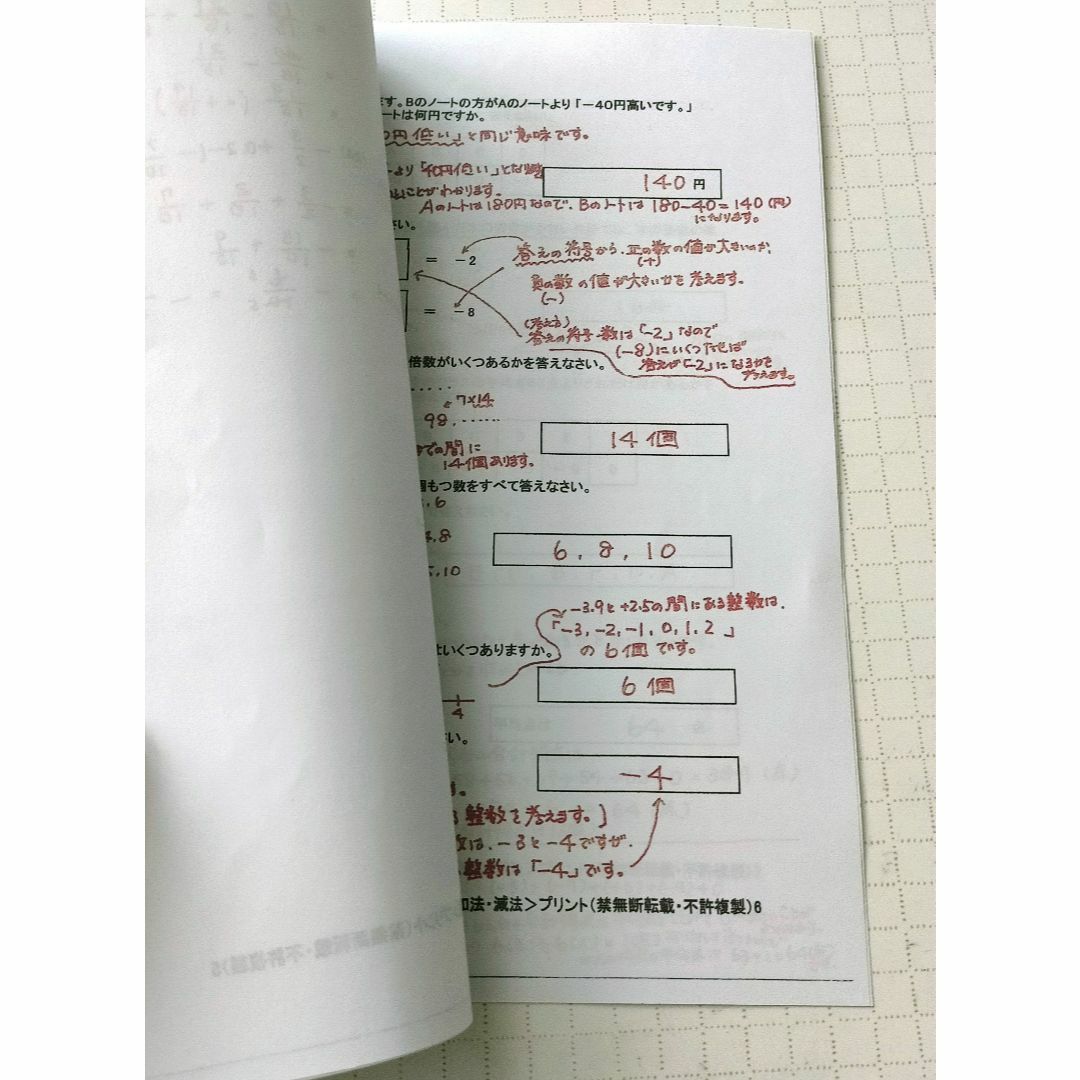 ます。Bのノートの方がAのノートより「－40円高いです。」
ートは何円ですか。
円低い」と同じ意味です。
より「40円低い」となり
ことがわかります。
140 円
Aのノートは180円なので、Bのノートは 180－40＝140（円）
になります。
さい。
＝ －2
答えの符号から、正の数の値が大きいのか、
(＋)
負の数の値が大きいかを考えます。
(－)
＝ －8
(考え方)
答えの符号・数は「－2」なので
(－8)にいくつたせば
答えが「－2」になるかを
考えます。
倍数がいくつあるかを答えなさい。
7×14
98, ‥‥‥
14個
での間に
14個あります。
個もつ数をすべて答えなさい。
, 6
, 8
6, 8, 10
, 10
－3.9と＋2.5の間にある整数は、
「－3, －2, －1, 0, 1, 2」
の6個です。
はいくつありますか。
6個
4
さい。
－4
。
整数を考えます。」
数は、－3と－4ですが、
整数は「－4」です。
加法・減法＞プリント(禁無断転載・不許複製)6